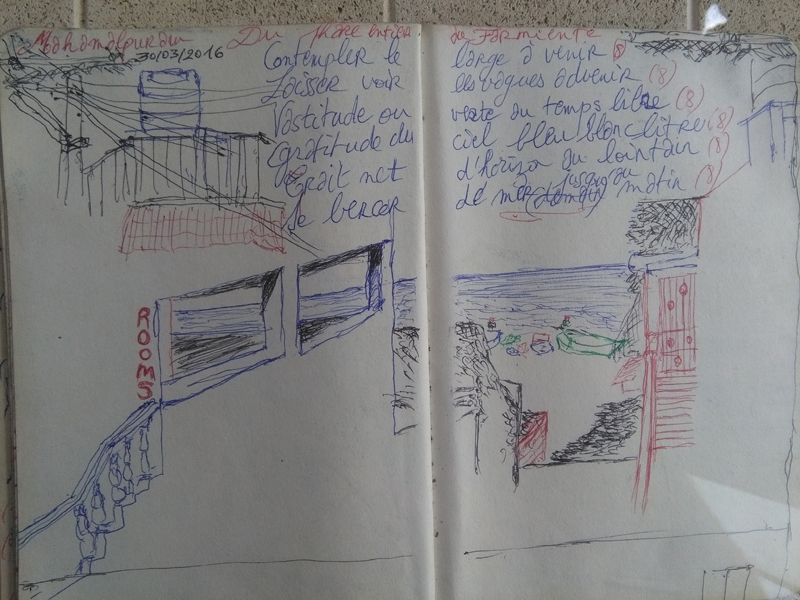 Du phare entier de Farniente
30/03/2016
Contempler le large à venir (8)
Laisser voir les vagues advenir (8)
Vastitude ou reste du temps libre (8)
Gratitude du ciel bleu blanc litre (8)
Trait net d'horizo au lointain (8)
Se bercer de mer jusqu'au matin (8)
(demain)
ROOMS